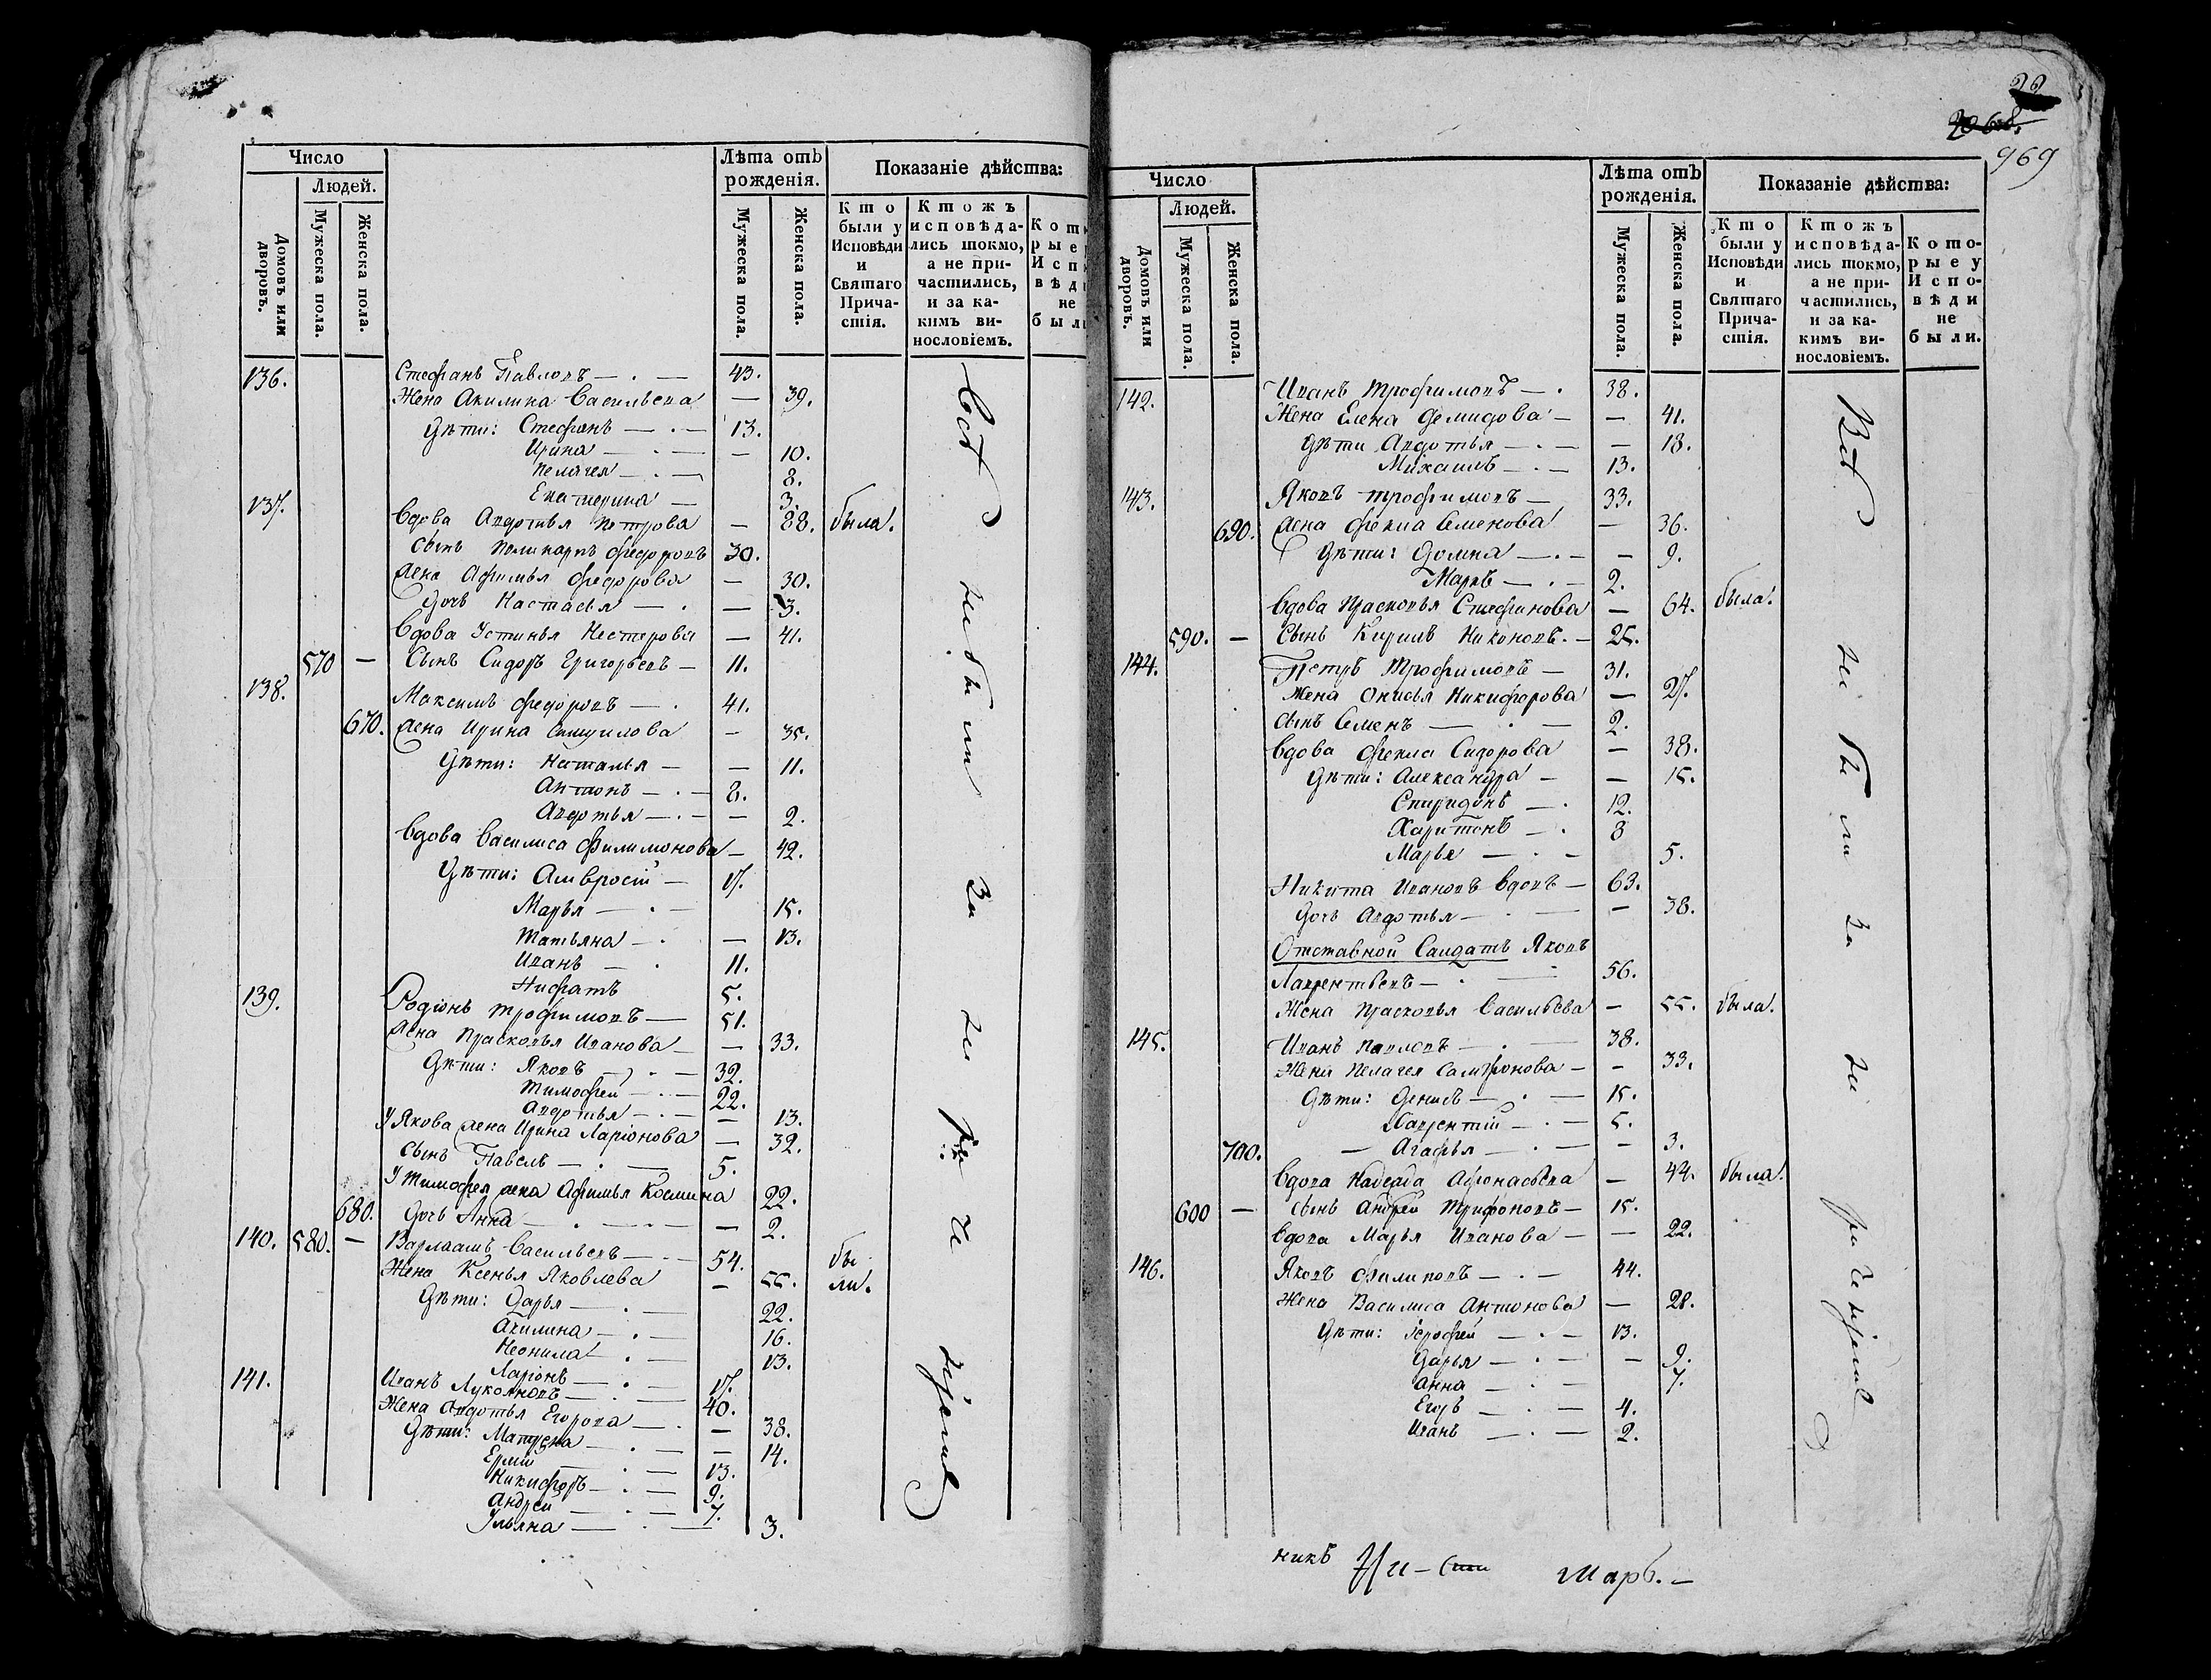 Число
Людей.
Домовъ или дворовъ.
Мужеска пола.
Женска пола.
Лѣта отъ рожденія.
Мужеска пола.
Женска пола.
Показаніе дѣйства:
Кто были у Исповѣди и Святаго Причастія.
Ктожъ исповѣдались токмо, а не причастились, и за какимъ винословіемъ.
136. Стефанъ Павловъ — 43.
Жена Акилина Васильева — 39.
Дѣти: Стефанъ — 13.
Ирина — 10.
Пелагея — 8.
Екатерина — 3.
137. Вдова Авдотья Петрова — 88. была.
Сынъ Поликарпъ Федоровъ 30.
Жена Афимья Федорова — 30.
Дочь Настасья — 3.
Вдова Устинья Нестерова — 41.
570 — Сынъ Сидоръ Григорьевъ — 11.
138. Максимъ Федоровъ — 41.
670. Жена Ирина — 35.
Дѣти: Наталья — 11.
Антонъ — 8.
Авдотья — 2.
Вдова Василиса Филимонова — 42.
Дѣти: Амвросій — 17.
Марья — 15.
Татьяна — 13.
Иванъ — 11.
Нифатъ 5.
139. Родіонъ Трофимовъ — 51.
Жена Прасковья Иванова — 33.
Дѣти: Яковъ — 32.
Тимофей — 22.
Авдотья — 13.
У Якова жена Ирина Ларіонова — 32.
Сынъ Павелъ — 5.
У Тимофея жена Афимья Космина 22.
680. Дочь Анна — 2.
140. 580. — Варлаамъ Васильевъ — 54. бы
Жена Ксенья Яковлева — 55. ли.
Дѣти: Дарья — 22.
Акилина — 16.
Неонила — 13.
Ларіонъ — 17.
141. Иванъ Лукояновъ — 40.
Жена Авдотья Егорова — 38.
Дѣти: Матрена — 14.
Ермій — 13.
Никифоръ — 9.
Андрей — 7.
Ульяна — 3.
Всѣ не были за не ра че нiемъ
22
969
Число
Людей.
Домовъ или дворовъ.
Мужеска пола.
Женска пола.
Лѣта отъ рожденія.
Мужеска пола.
Женска пола.
Показаніе дѣйства:
Кто были у Исповѣди и Святаго Причастія.
Ктожъ исповѣдались токмо, а не причастились, и за какимъ винословіемъ.
Которые у Исповѣди не были.
142. Иванъ Трофимовъ — 38.
Жена Елена Демидова — 41.
Дѣти Авдотья — 18.
Михаилъ — 13.
143. Яковъ Трофимовъ — 33.
690. Жена Фекла Семенова — 36.
Дѣти: Домна — 9.
Маркъ — 2.
Вдова Прасковья Стефанова — 64. была.
590. — Сынъ Кирилъ Никоновъ. — 25.
144. Петръ Трофимовъ — 31.
Жена Онисья Никифорова — 27.
Сынъ Семенъ — 2.
Вдова Фекла Сидорова — 38.
Дѣти: Александра — 15.
Спиридонъ — 12.
Харитонъ — 8
Марья — 5.
Никита Ивановъ вдовъ — 63.
Дочь Авдотья — 38.
Отставной Салдатъ Яковъ
Лаврентьевъ — 56.
Жена Прасковья Васильева — 55. была.
145. Иванъ Павловъ — 38.
Жена Пелагея Самсонова — 33.
Дѣти: Денисъ — 15.
Лаврентій — 5.
700. — Агафья — 3.
Вдова Надежда Афонасьева — 44. была.
600 — Сынъ Андрей Трифоновъ — 15.
Вдова Марья Иванова — 22.
146. Яковъ Филиповъ — 44.
Жена Василиса Антонова — 28.
Дѣти: Ерофей — 13.
Дарья — 9.
Анна — 7.
Егоръ — 4.
Иванъ — 2.
Всѣ не бы ли за не ра ченiемъ
никъ